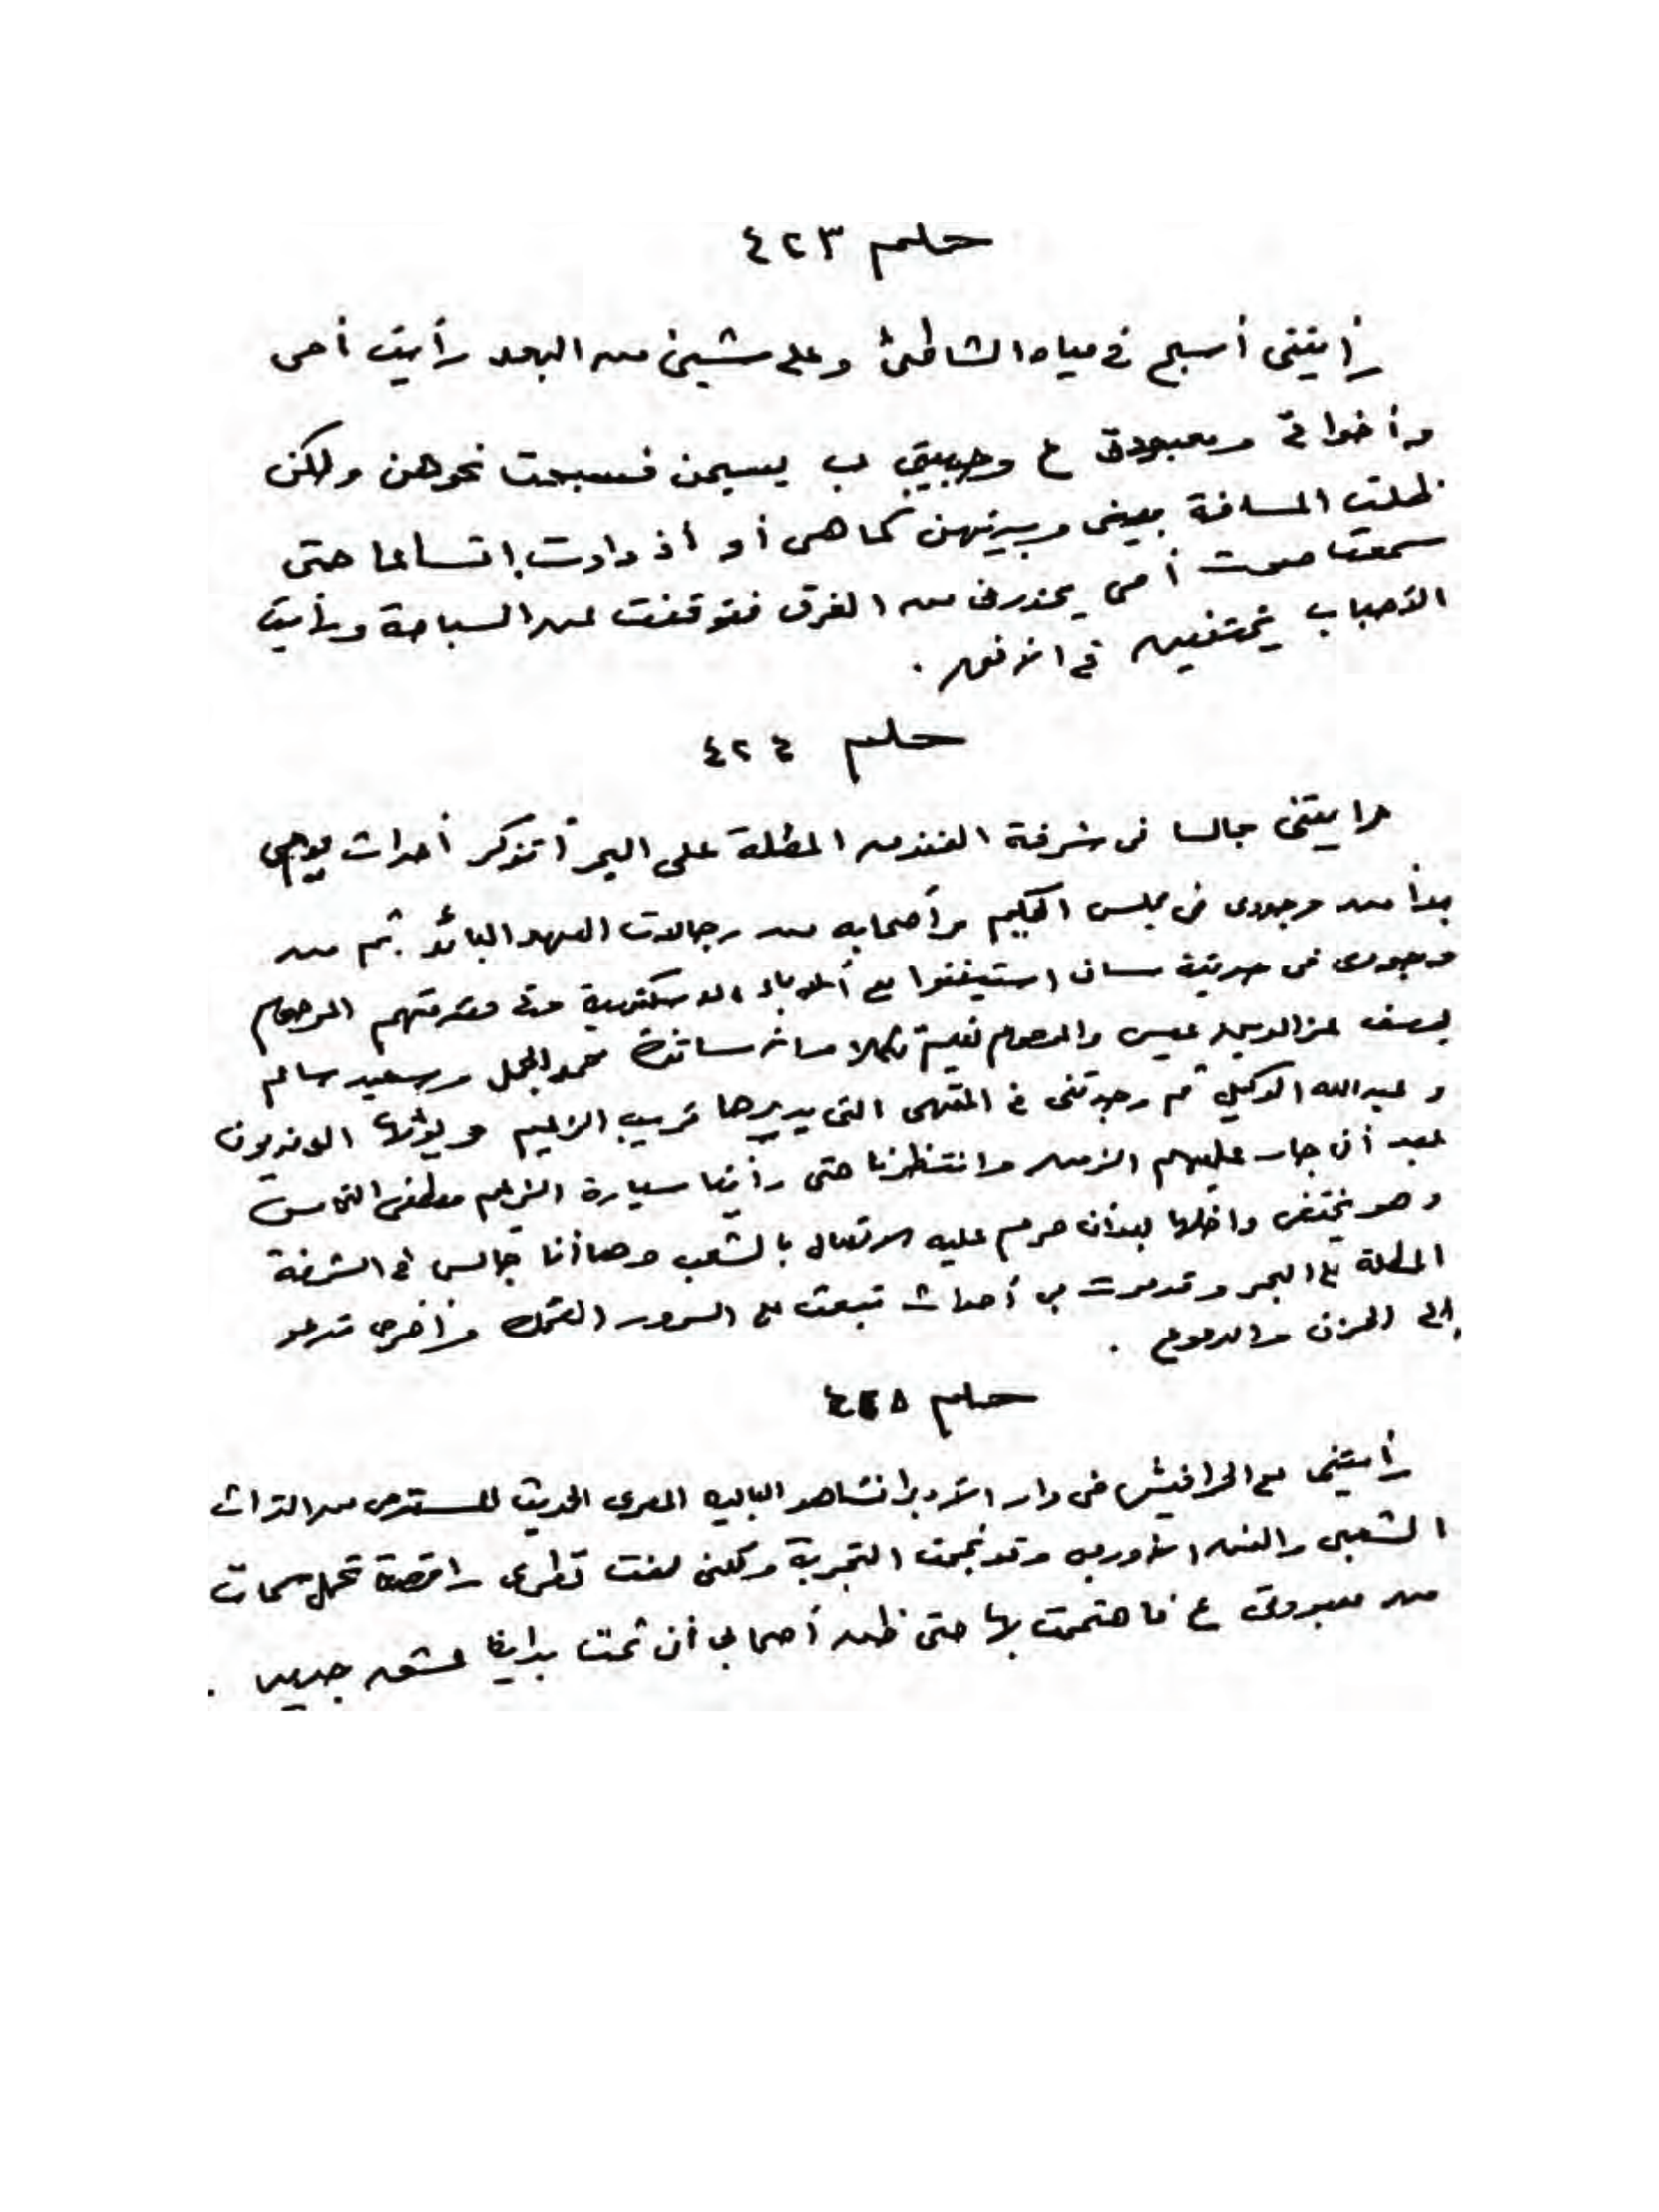 حلم ٤٢٣
رأيتنى أسبح فى مياه الشاطئ وعلى شيئ من البعد رأيت أمى
وأخواتى ومعبودتى ع وحبيبتى ب يسبحن فسبحت نحوهن ولكن
ظلت المسافة بينى وبينهن كما هى أو ازدادت إتساعا حتى
سمعت صوت أمى يحذرنى من الغرق فتوقفت عن السباحة ورأيت
الأحباب يختفين فى الأفق .
حلم ٤٢٤
رأيتنى جالسا فى شرفة الفندق المطلة على البحر أتذكر أحداث يومى
بدأ من وجودى فى مجلس الحكيم وأصحابه من رجالات العهد البائد ثم من
وجودى فى حديقة سان استيفنوا مع أدباء الاسكندرية وفى مقدمتهم المرحوم
يوسف عز الدين عيسى والمرحوم نعيم تكلا والأساتذة محمد الجمل وسعيد سالم
وعبد الله الوكيل ثم وجدتنى فى المقهى التى يديرها قريب الزعيم ويؤمها الوفديون
بعد أن جار عليهم الزمن وانتظرنا حتى رأينا سيارة الزعيم مصطفى النحاس
وهو يختفى داخلها بعد أن حرم عليه الاتصال بالشعب وها أنا جالس فى الشرفة
المطلة على البحر وقد مرت بى أحداث تبعث على السرور الضحك وأخرى تدعو
إلى الحزن والدموع .
حلم ٤٢٥
رأيتنى مع الحرافيش فى دار الأوبرا نشاهد الباليه المصرى الحديث المستوحى من التراث
الشعبى والفن الأوربى وقد نجحت التجربة ولكن لفت نظرى راقصة تحمل سمات
من معبودتى ع فاهتممت بها حتى ظن أصحابى أن ثمت بداية عشق جديد .